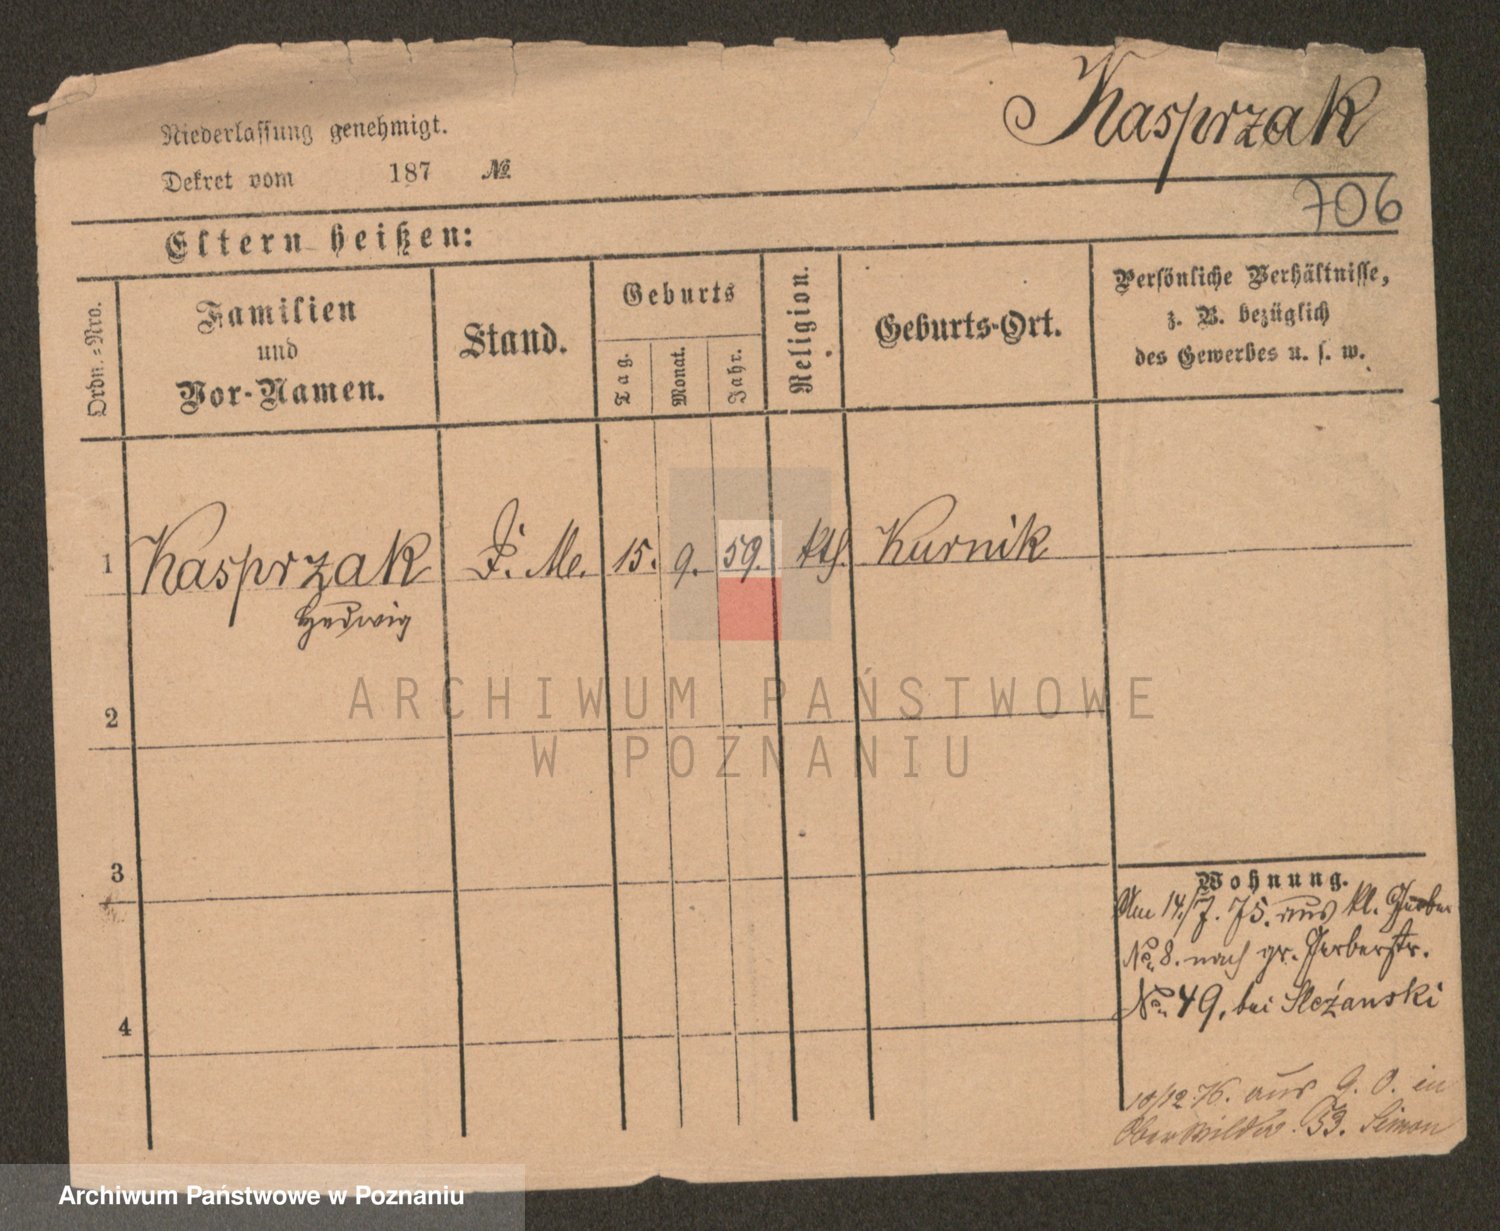 Kasprzak
Niederlassung genehmigt.
Dekret vom 187 №
706
Eltern heißen:
Ordn.-Nro.
Familien
und
Vor-Namen.
Stand.
Geburts
Tag.
Monat.
Jahr.
Religion.
Geburts-Ort.
Persönliche Verhältnisse,
z. B. bezüglich
des Gewerbes u. s. w.
1 Kasprzak D. Me. 15. 9. 59. kth. Kurnik
Hedwig
2
3
4
Wohnung.
Am 14./7. 75. aus kl. Gerber
No. 8. nach gr. Gerberstr.
No. 49, bei Sleżanski
10/12 76. aus G. O. in
Ober Wilda 53. Simon
ARCHIWUM PAŃSTWOWE
W POZNANIU
Archiwum Państwowe w Poznaniu